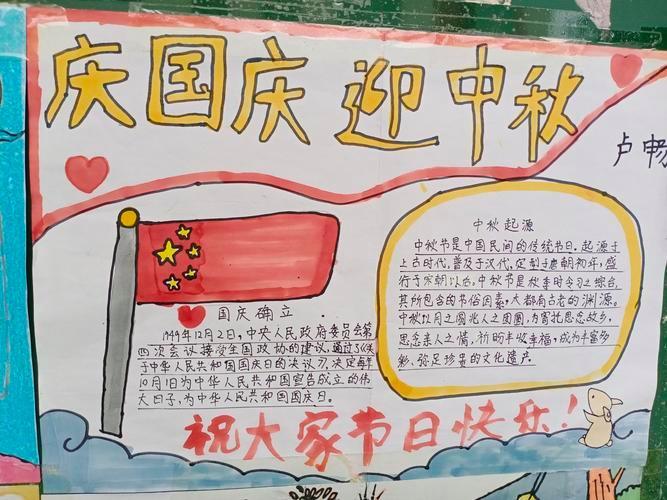 庆国庆 迎中秋
卢畅
中秋起源
中秋节是中国民间的传统节日。起源于
上古时代,普及于汉代,定制于唐朝初年,盛
行于宋朝以后。中秋节是秋季时令习之综合,
其所包含的节俗因素,大都有古老的渊源。
中秋以月之圆兆人之团圆,为寄托思念故乡,
思念亲人之情,祈盼丰收幸福,成为丰富多
彩、弥足珍贵的文化遗产。
国庆确立
1949年12月2日,中央人民政府委员会第
四次会议接受全国政协的建议,通过了《关
于中华人民共和国国庆日的决议》,决定每年
10月1日为中华人民共和国宣告成立的伟
大日子,为中华人民共和国国庆日。
祝大家节日快乐!